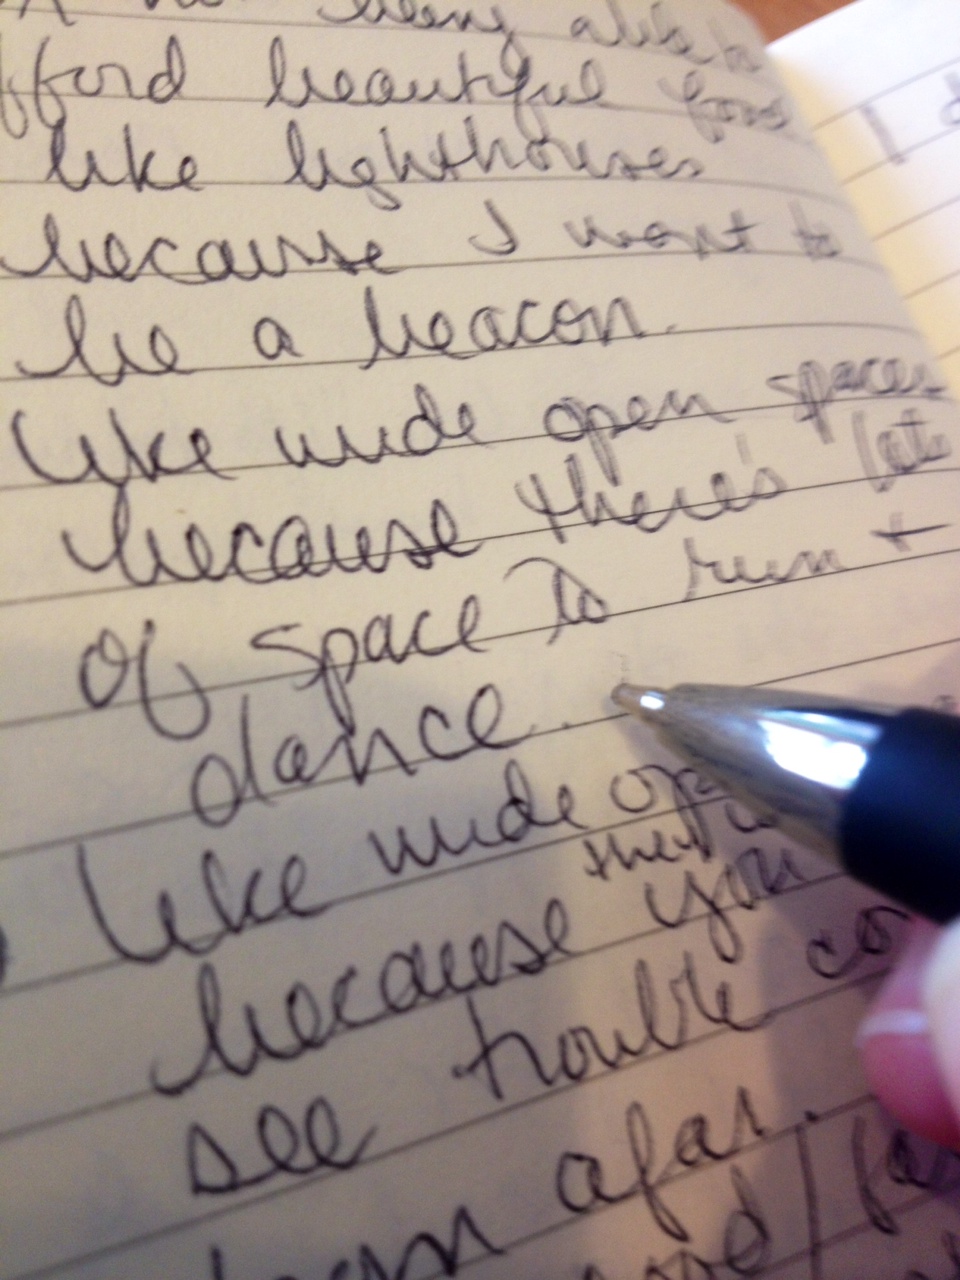 being able to
fford beautiful food
like lighthouses
because I want to
be a beacon.
like wide open spaces
because there's lots
of space to run +
dance.
like wide op
there
because you
see trouble co
from afar.
I